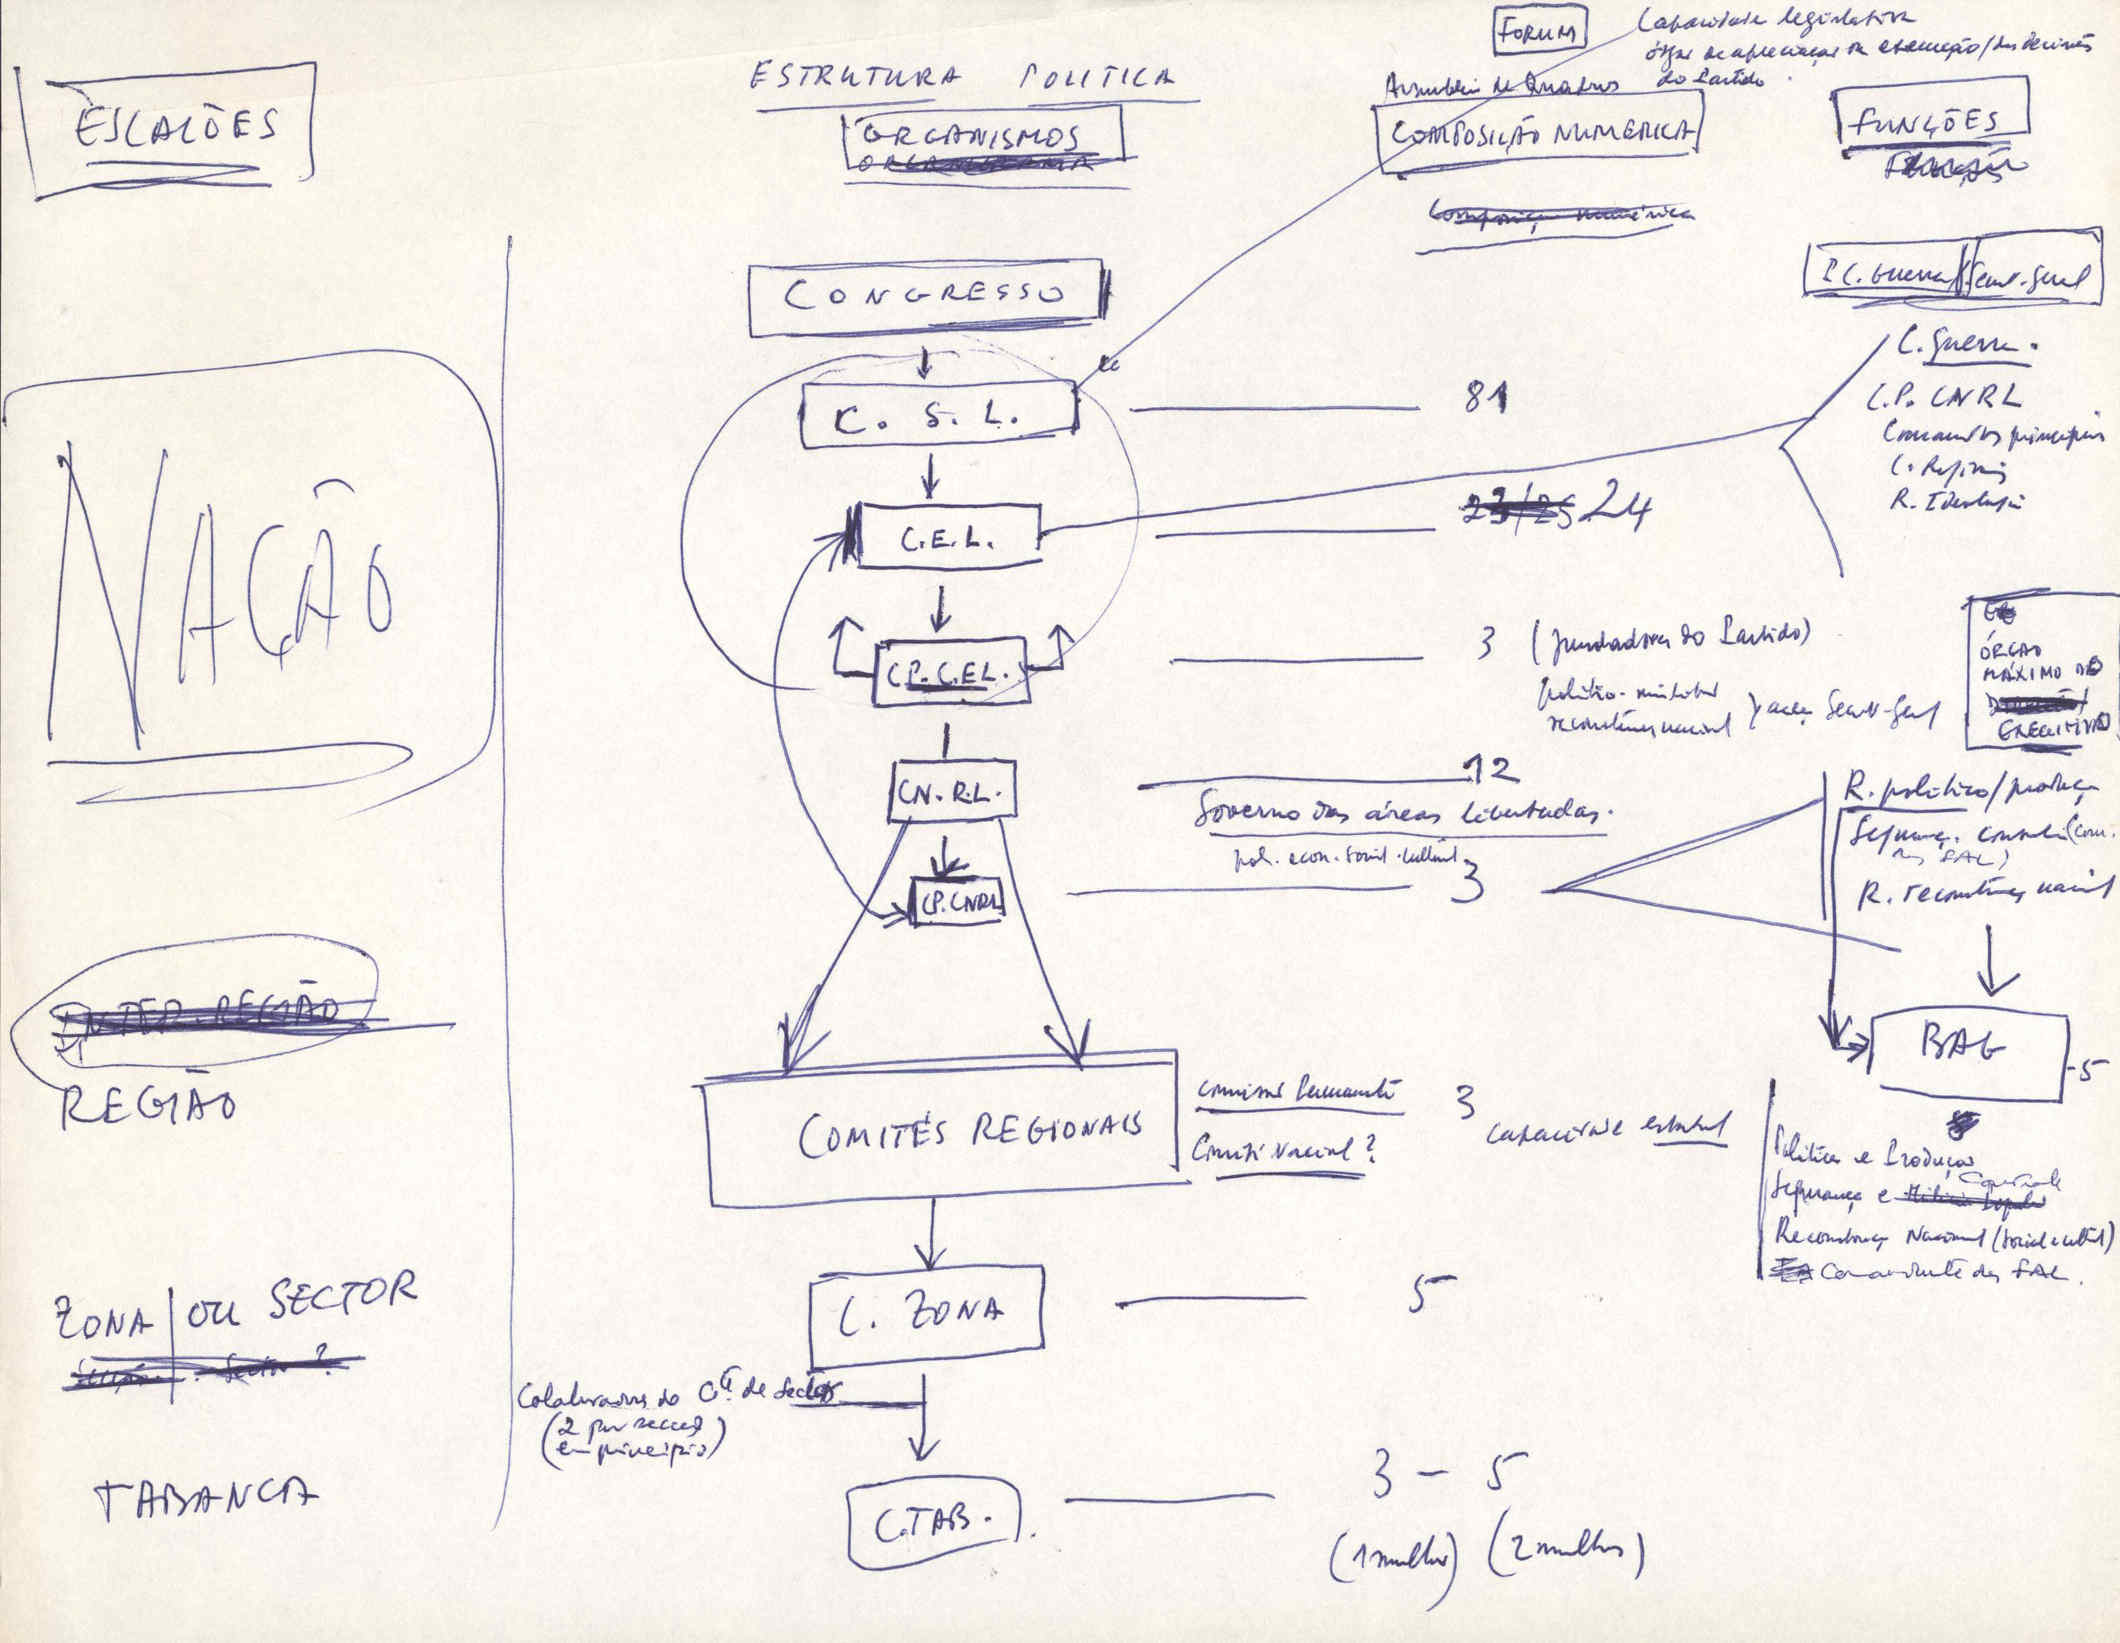 FORUM
Capacidade legislativa
órgão de apreciação da execução/das decisões
do Partido.
ESTRUTURA POLITICA
Assembleia de Quadros
ESCALÕES
ORGANISMOS
COMPOSIÇÃO NUMERICA
FUNÇÕES
Composição numérica
CONGRESSO
C. Guerra
Secret. Geral
C. Guerra.
C. S. L.
81
C.P. CNRL
Comandos principais
NAÇÃO
C.E.L.
23/25 24
CP. C.EL.
3 (fundadores do Partido)
politico-militar
reconstrução nacional
Secret-Geral
ÓRGÃO
MÁXIMO DE
EXECUTIVO
CN. R.L.
12
Governo das áreas libertadas.
pol. econ. social. cultural
R. politico/produção
Segurança. controle (com.
das FAL)
R. reconstrução nacional
CP. CNRL
3
INTER-REGIÃO
REGIÃO
BAG
-5
COMITÉS REGIONAIS
Comissão Permanente
3
capacidade estatal
Comité Nacional?
Politica e Produção
Controle
Segurança e Milicia Popular
Reconstrução Nacional (social e cultural)
Comandante das FAL.
ZONA OU SECTOR
Secção. Sector?
C. ZONA
5
Colaboradores do Cté. de Sector
(2 por secção
em principio)
TABANCA
C.TAB.
3 - 5
(1 mulher) (2 mulheres)